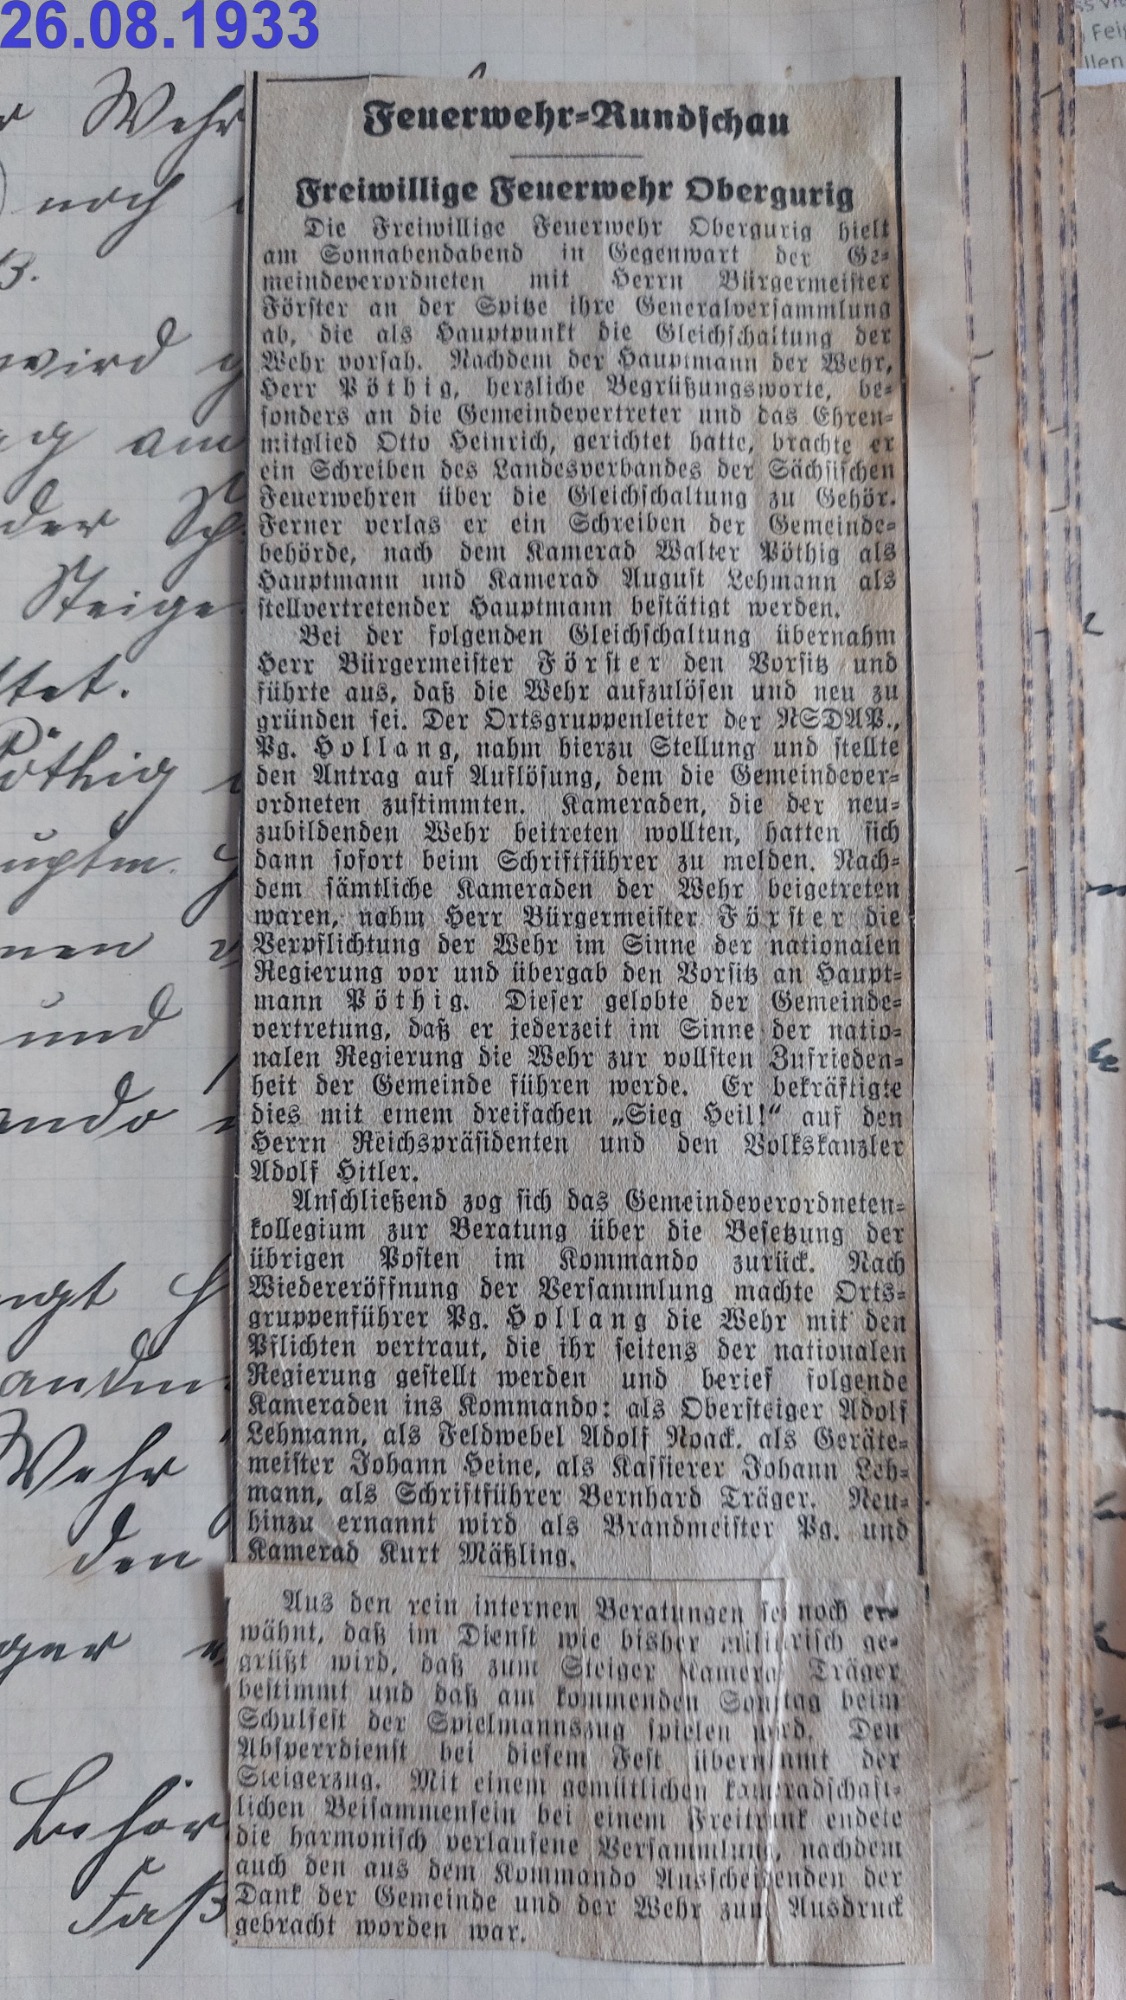 26.08.1933
Feuerwehr-Rundschau
Freiwillige Feuerwehr Obergurig
Die Freiwillige Feuerwehr Obergurig hielt
am Sonnabendabend in Gegenwart der Ge-
meindeverordneten mit Herrn Bürgermeister
Förster an der Spitze ihre Generalversammlung
ab, die als Hauptpunkt die Gleichschaltung der
Wehr vorsah. Nachdem der Hauptmann der Wehr,
Herr Pöthig, herzliche Begrüßungsworte, be-
sonders an die Gemeindevertreter und das Ehren-
mitglied Otto Heinrich, gerichtet hatte, brachte er
ein Schreiben des Landesverbandes der Sächsischen
Feuerwehren über die Gleichschaltung zu Gehör.
Ferner verlas er ein Schreiben der Gemeinde-
behörde, nach dem Kamerad Walter Pöthig als
Hauptmann und Kamerad August Lehmann als
stellvertretender Hauptmann bestätigt werden.
Bei der folgenden Gleichschaltung übernahm
Herr Bürgermeister Förster den Vorsitz und
führte aus, daß die Wehr aufzulösen und neu zu
gründen sei. Der Ortsgruppenleiter der NSDAP.,
Pg. Hollang, nahm hierzu Stellung und stellte
den Antrag auf Auflösung, dem die Gemeindever-
ordneten zustimmten. Kameraden, die der neu-
zubildenden Wehr beitreten wollten, hatten sich
dann sofort beim Schriftführer zu melden. Nach-
dem sämtliche Kameraden der Wehr beigetreten
waren, nahm Herr Bürgermeister Förster die
Verpflichtung der Wehr im Sinne der nationalen
Regierung vor und übergab den Vorsitz an Haupt-
mann Pöthig. Dieser gelobte der Gemeinde-
vertretung, daß er jederzeit im Sinne der natio-
nalen Regierung die Wehr zur vollsten Zufrieden-
heit der Gemeinde führen werde. Er bekräftigte
dies mit einem dreifachen „Sieg Heil!“ auf den
Herrn Reichspräsidenten und den Volkskanzler
Adolf Hitler.
Anschließend zog sich das Gemeindeverordneten-
kollegium zur Beratung über die Besetzung der
übrigen Posten im Kommando zurück. Nach
Wiedereröffnung der Versammlung machte Orts-
gruppenführer Pg. Hollang die Wehr mit den
Pflichten vertraut, die ihr seitens der nationalen
Regierung gestellt werden und berief folgende
Kameraden ins Kommando: als Obersteiger Adolf
Lehmann, als Feldwebel Adolf Noack, als Geräte-
meister Johann Heine, als Kassierer Johann Leh-
mann, als Schriftführer Bernhard Träger. Neu-
hinzu ernannt wird als Brandmeister Pg. und
Kamerad Kurt Mäßling.
Aus den rein internen Beratungen sei noch er-
wähnt, daß im Dienst wie bisher militärisch ge-
grüßt wird, daß zum Steiger Kamerad Träger
bestimmt und daß am kommenden Sonntag beim
Schulfest der Spielmannszug spielen wird. Den
Absperrdienst bei diesem Fest übernimmt der
Steigerzug. Mit einem gemütlichen kameradschaft-
lichen Beisammensein bei einem Freitrunk endete
die harmonisch verlaufene Versammlung, nachdem
auch den aus dem Kommando Ausscheidenden der
Dank der Gemeinde und der Wehr zum Ausdruck
gebracht worden war.
Wehr
noch
wird
am
der
Pöthig
und
Wehr
den